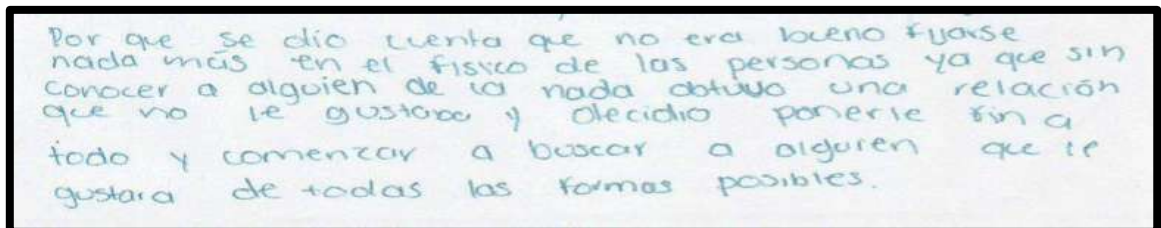 Por que se dio cuenta que no era bueno fijarse
nada más en el fisico de las personas ya que sin
conocer a alguien de la nada obtuvo una relación
que no le gustaba y decidio ponerle fin a
todo y comenzar a buscar a alguien que le
gustara de todas las formas posibles.